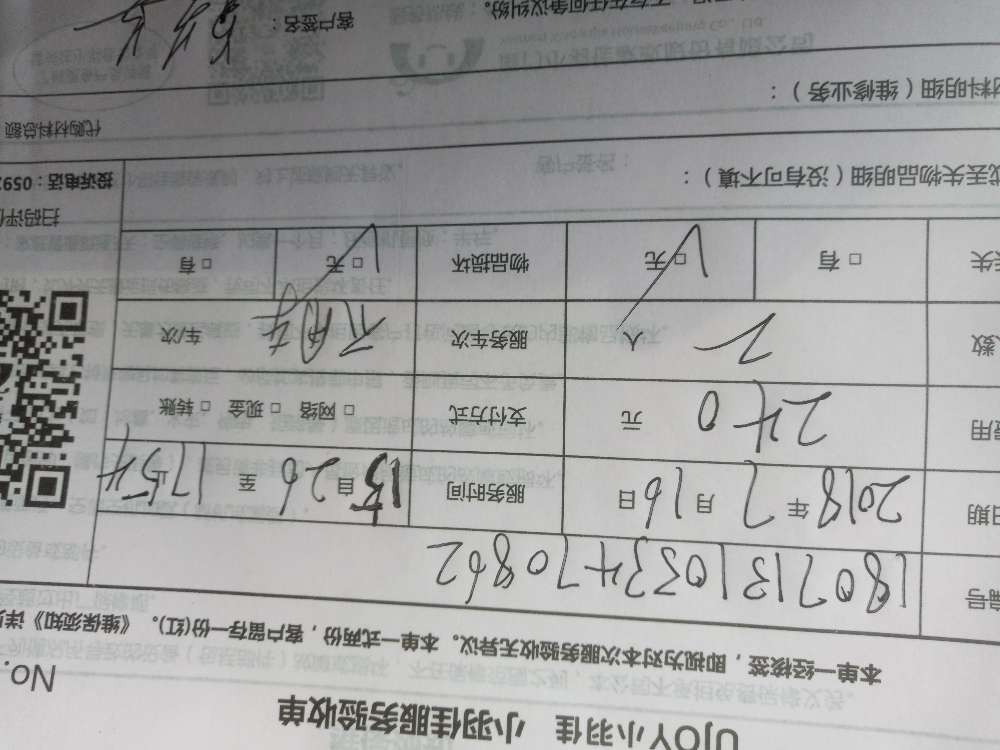 UJOY小羽佳 小羽佳服务验收单
No.
本单一经核签，即视为对本次服务验收无异议。本单一式两份，客户留存一份(红)。《维保须知》详
编号 1807131033470862
日期 2018 年 7 月 16 日 服务时间 自 26 至 1754 止
费用 240 元 支付方式 □ 网络 □ 现金 □ 转账
人数 2 人 服务车次 车/次
失 □ 有 □ 无 物品损坏 □ 无 □ 有
或丢失物品明细（没有可不填）：
扫码评
投诉电话：059
材料明细（维修业务）：
代购材料总额
不存在任何争议纠纷。
客户签名：